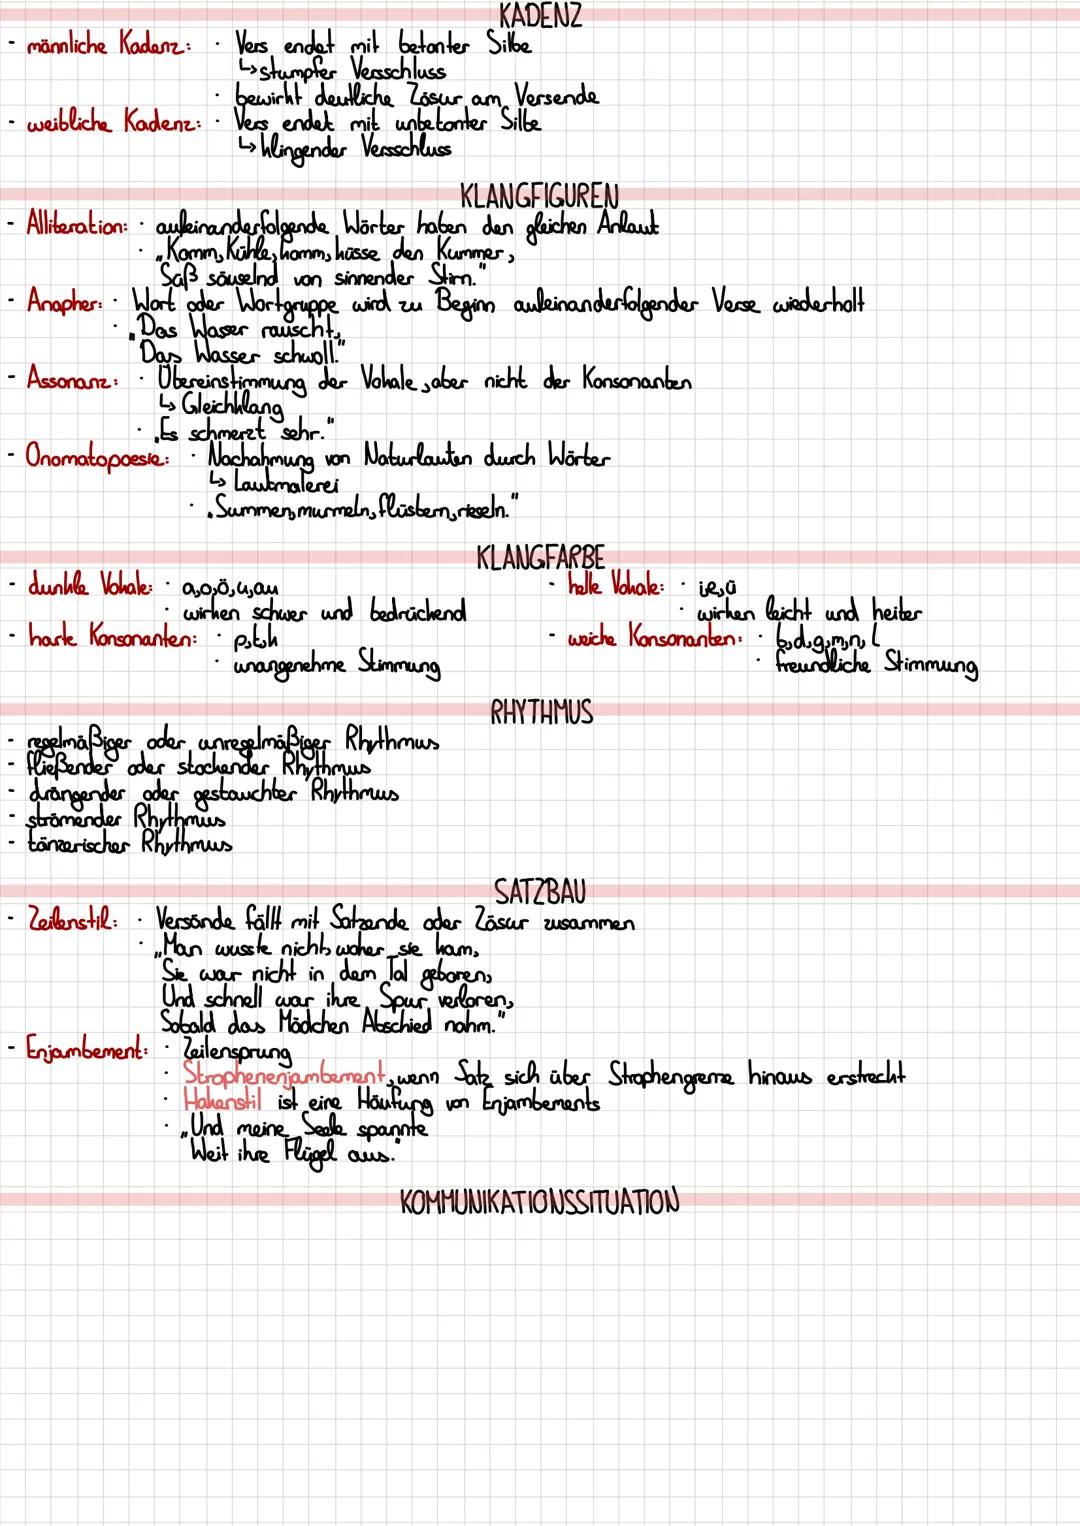 KADENZ
- männliche Kadenz: · Vers endet mit betonter Silbe
↳ stumpfer Versschluss
· bewirkt deutliche Zäsur am Versende
- weibliche Kadenz: · Vers endet mit unbetonter Silbe
↳ klingender Versschluss
KLANGFIGUREN
- Alliteration: · aufeinanderfolgende Wörter haben den gleichen Anlaut
· „Komm, Kühle, komm, küsse den Kummer,
Süß säuselnd von sinnender Stirn."
- Anapher: · Wort oder Wortgruppe wird zu Beginn aufeinanderfolgender Verse wiederholt
· „Das Wasser rauscht,
Das Wasser schwoll."
- Assonanz: · Übereinstimmung der Vokale, aber nicht der Konsonanten
↳ Gleichklang
· „Es schmerzt sehr."
- Onomatopoesie: · Nachahmung von Naturlauten durch Wörter
↳ Lautmalerei
· „Summen, murmeln, flüstern, rieseln."
KLANGFARBE
- dunkle Vokale: · a, o, ö, u, au
· wirken schwer und bedrückend
- harte Konsonanten: · p, t, k
· unangenehme Stimmung
- helle Vokale: · i, e, ü
· wirken leicht und heiter
- weiche Konsonanten: · b, d, g, m, n, l
· freundliche Stimmung
RHYTHMUS
- regelmäßiger oder unregelmäßiger Rhythmus
- fließender oder stockender Rhythmus
- drängender oder gestauchter Rhythmus
- strömender Rhythmus
- tänzerischer Rhythmus
SATZBAU
- Zeilenstil: · Versände fällt mit Satzende oder Zäsur zusammen
· „Man wusste nicht, woher sie kam,
Sie war nicht in dem Tal geboren,
Und schnell war ihre Spur verloren,
Sobald das Mädchen Abschied nahm."
- Enjambement: · Zeilensprung
· Strophenenjambement, wenn Satz sich über Strophengrenze hinaus erstreckt
· Hakenstil ist eine Häufung von Enjambements
· „Und meine Seele spannte
Weit ihre Flügel aus."
KOMMUNIKATIONSSITUATION